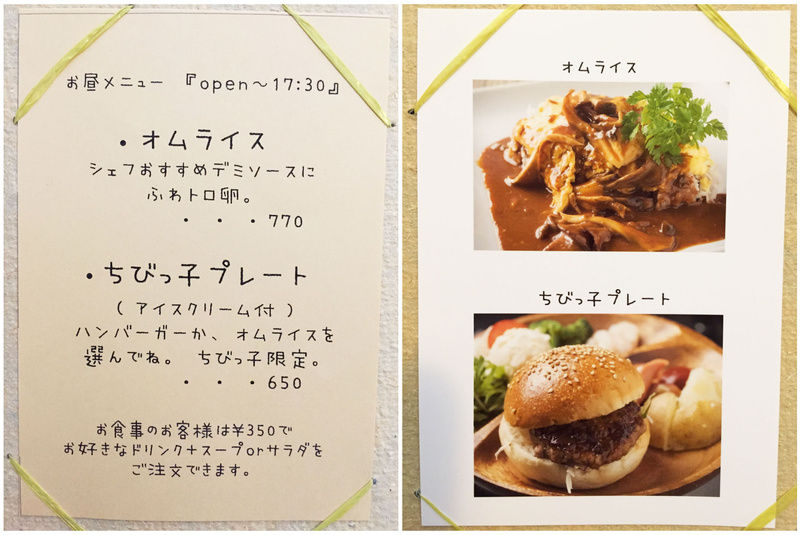 お昼メニュー 『open～17:30』
・オムライス
シェフおすすめデミソースに
ふわトロ卵。
・ ・ ・770
・ちびっ子プレート
( アイスクリーム付 )
ハンバーガーか、オムライスを
選んでね。 ちびっ子限定。
・ ・ ・650
お食事のお客様は¥350で
お好きなドリンク+スープorサラダを
ご注文できます。
オムライス
ちびっ子プレート